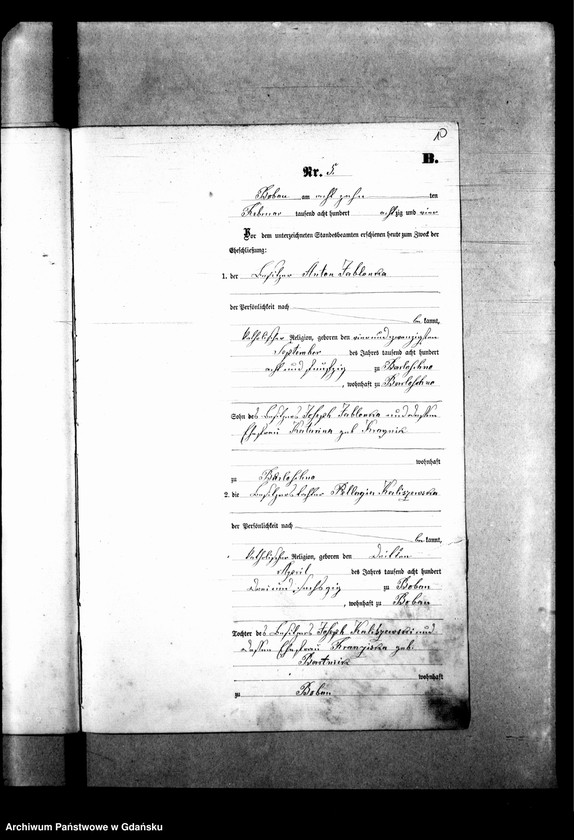 10
B.
Nr. 5.
Bobau am acht zehn ten
Februar tausend acht hundert achtzig und vier
Vor dem unterzeichneten Standesbeamten erschienen heute zum Zweck der
Eheschließung:
1. der Besitzer Anton Jablonka
der Persönlichkeit nach
be kannt,
katholischer Religion, geboren den vier und zwanzigsten
September des Jahres tausend acht hundert
acht und fünfzig zu Barloschno
, wohnhaft zu Barloschno
Sohn des Besitzers Joseph Jablonka und dessen
Ehefrau Katarina geb
wohnhaft
zu Barloschno
2. die Besitzerstochter Pellagia Kaliszewska
der Persönlichkeit nach
be kannt,
katholischer Religion, geboren den dritten
April des Jahres tausend acht hundert
drei und sechszig zu Bobau
, wohnhaft zu Bobau
Tochter des Besitzers Joseph Kaliszewski und
dessen Ehefrau Franziska geb.
wohnhaft
zu Bobau
Archiwum Państwowe w Gdańsku